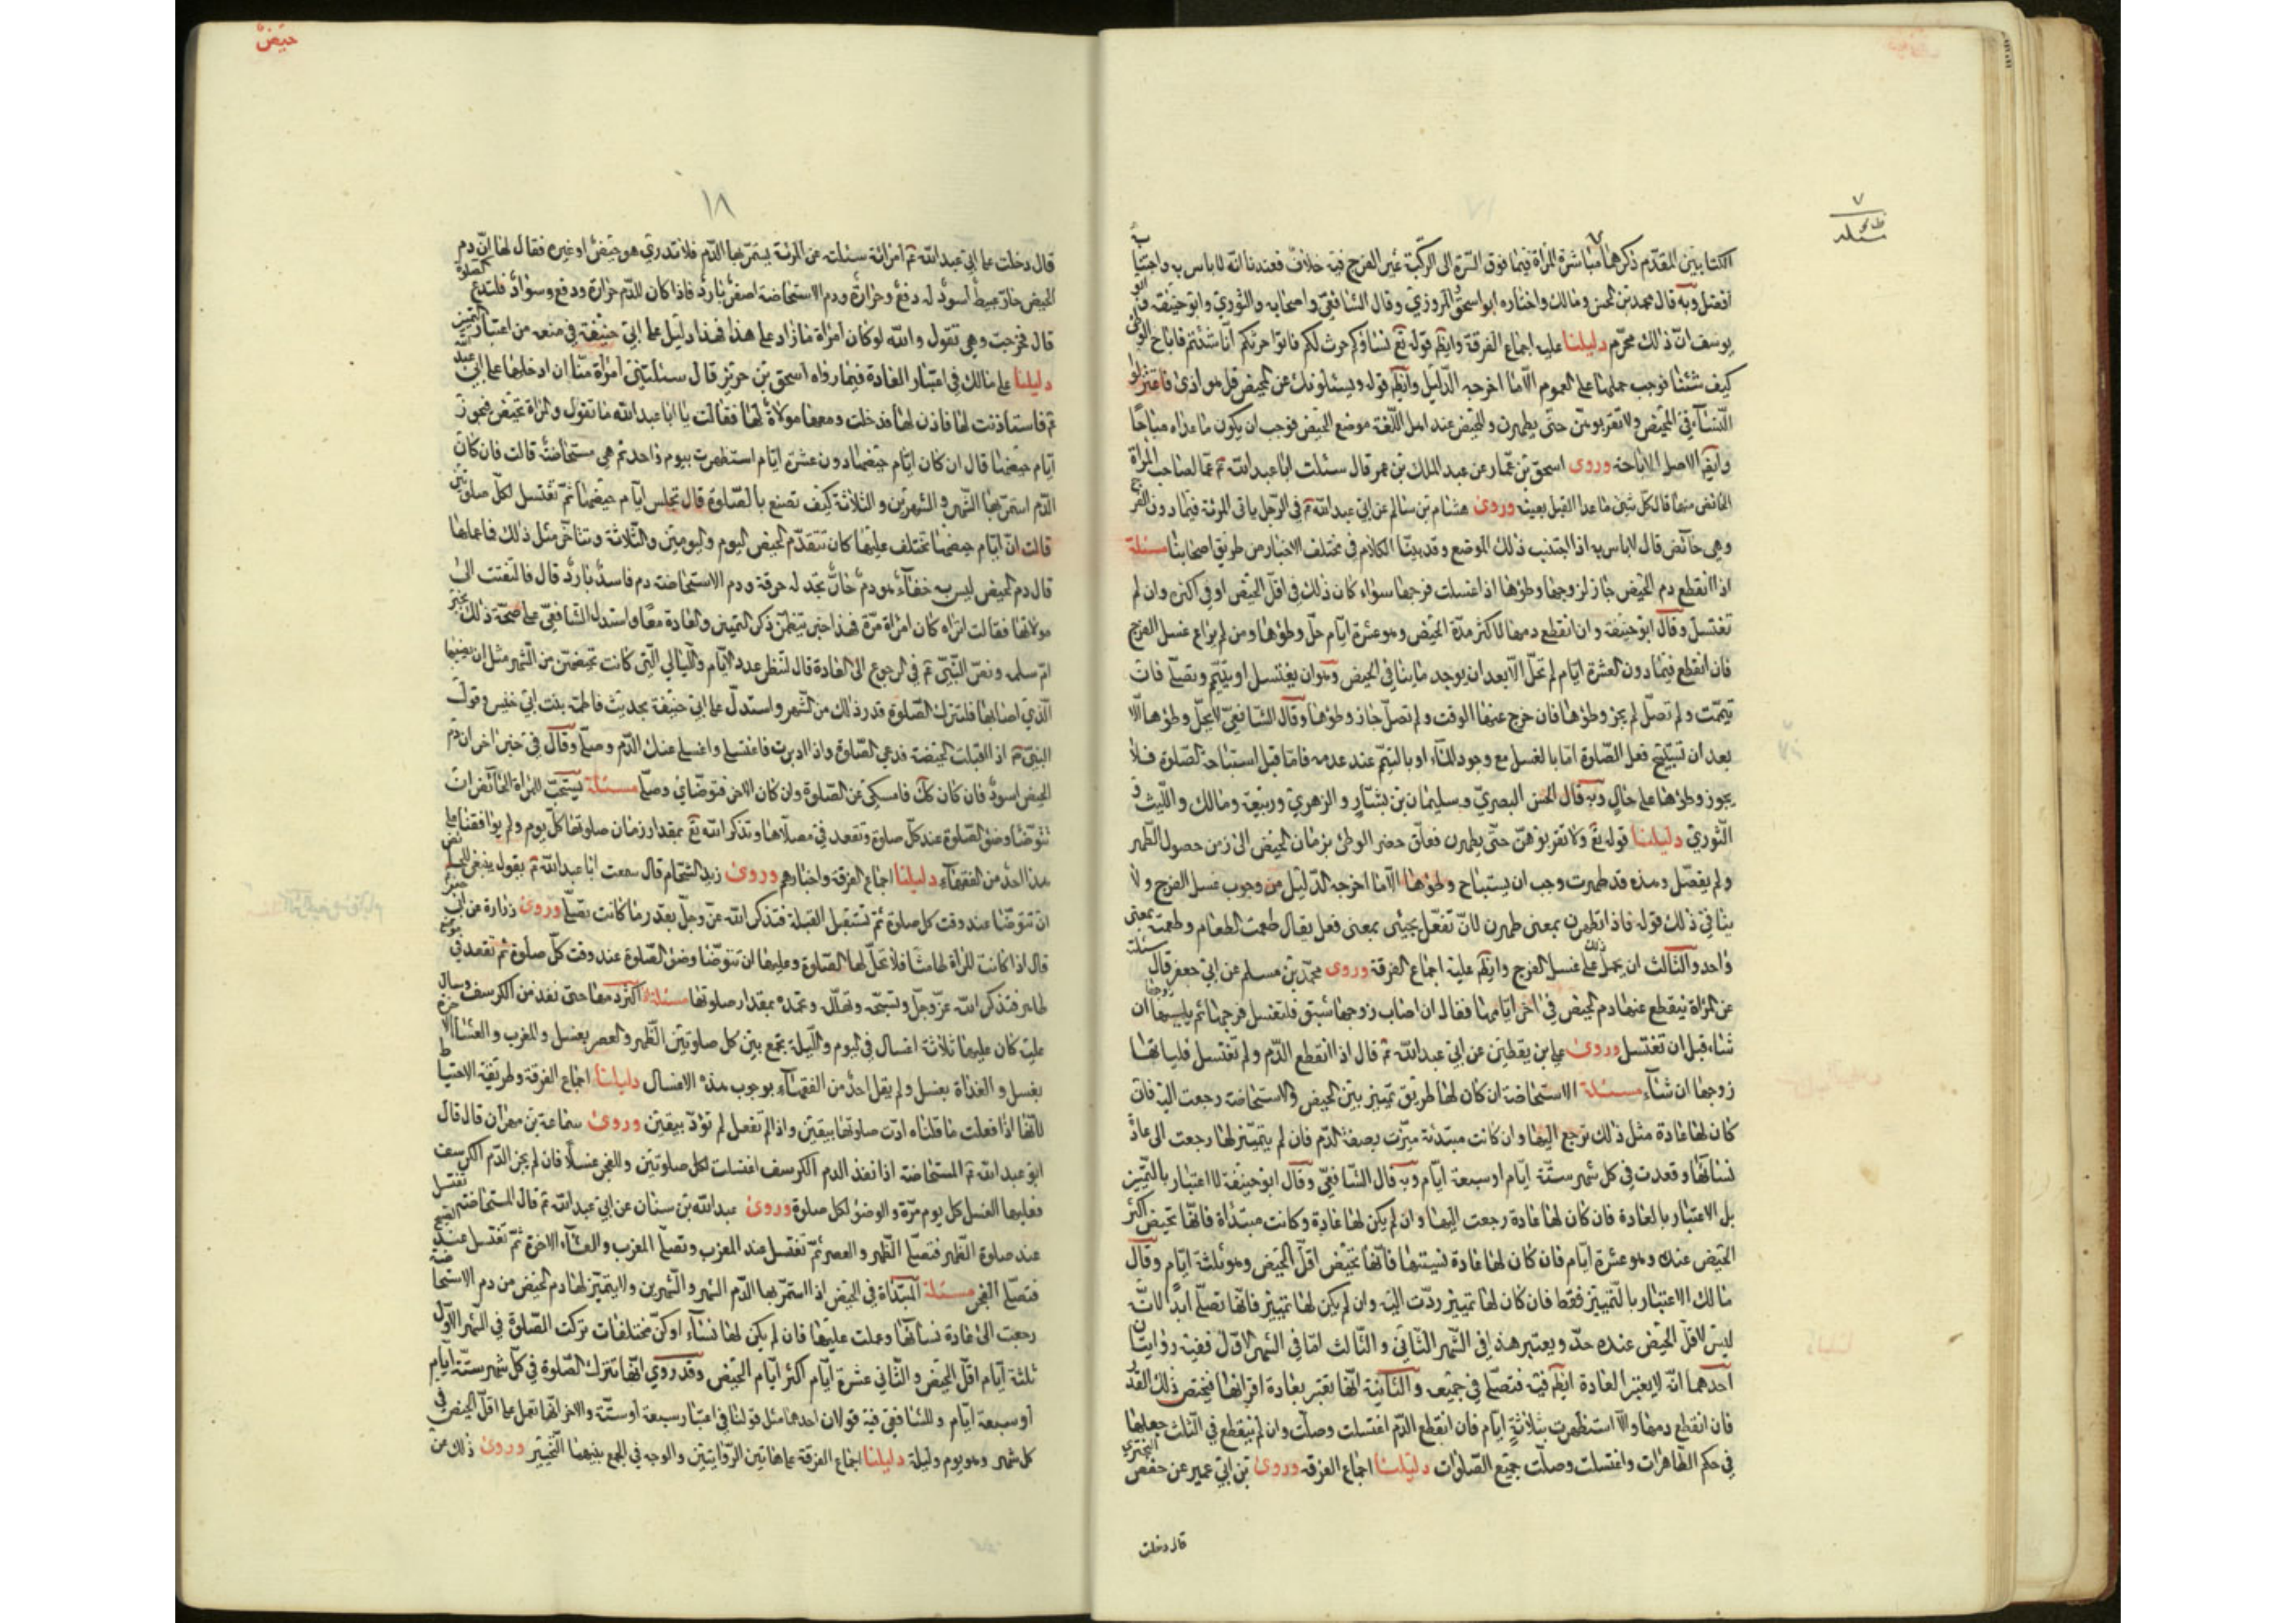 الكتابين المقدم ذكرهما مباشرة المرأة فيما فوق السرة الى الركبة غير الفرج فيه خلاف فعندنا انه لا باس به واجتنابه
افضل وبه قال محمد بن الحسن ومالك واختاره ابو اسحق المروزي وقال الشافعي واصحابه والثوري وابو حنيفة وابو
يوسف ان ذلك محرم دليلنا عليه اجماع الفرقة وايضا قوله تع نساؤكم حرث لكم فاتوا حرثكم انا شئتم فاباح الوطئ
كيف شئنا فوجب حملها على العموم الا ما اخرجه الدليل وايضا قوله ويسئلونك عن المحيض قل هو اذى فاعتزلوا
النساء في المحيض ولا تقربوهن حتى يطهرن والمحيض عند اهل اللغة موضع الحيض فوجب ان يكون ما عداه مباحا
وايضا الاصل الاباحة وروى اسحق بن عمار عن عبد الملك بن عمر قال سئلت ابا عبد الله ع ما لصاحب المرأة
الحائض منها قال كل شئ ما عدا القبل بعينه وروى هشام بن سالم عن ابي عبد الله ع في الرجل ياتي المرئة فيما دون الفرج
وهي حائض قال لا باس به اذا اجتنب ذلك الموضع وقد بينا الكلام في مختلف الاخبار من طريق اصحابنا مسئلة
اذا انقطع دم الحيض جاز لزوجها وطؤها اذا غسلت فرجها سواء كان ذلك في اقل الحيض او في اكثره وان لم
تغتسل وقال ابو حنيفة وان انقطع دمها لاكثر مدة الحيض وهو عشرة ايام حل وطؤها ومن لم يراع غسل الفرج
فان انقطع فيما دون العشرة ايام لم تحل الا بعد ان يوجد ما ينافي الحيض وهو ان يغتسل او يتيمم ويصلي فان
تيممت ولم تصل لم يجز وطؤها فان خرج عنها الوقت ولم تصل جاز وطؤها وقال الشافعي لا يحل وطؤها الا
بعد ان تستبيح فعل الصلوة اما بالغسل مع وجود الماء او بالتيمم عند عدمه فاما قبل استباحة الصلوة فلا
يجوز وطؤها على حال وبه قال الحسن البصري وسليمان بن يشار والزهري وربيعة ومالك والليث و
الثوري دليلنا قوله تع ولا تقربوهن حتى يطهرن فعلق حضر الوطئ بزمان الحيض الى زمن حصول الطهر
ولم يفصل وهذه قد طهرت وجب ان يستباح وطؤها الا ما اخرجه الدليل من وجوب غسل الفرج ولا
ينافي ذلك قوله فاذا تطهرن بمعنى طهرن لان تفعل يجيئ بمعنى فعل يقال طعمت الطعام وطعمته بمعنى
واحد والثالث ان يحمل ذلك على غسل الفرج وايضا عليه اجماع الفرقة وروى محمد بن مسلم عن ابي جعفر قال سئلته
عن المرأة ينقطع عنها دم الحيض في اخر ايامها فقال ان اصاب زوجها شبق فلتغسل فرجها ثم يمسها زوجها ان
شاء قبل ان تغتسل وروى علي بن يقطين عن ابي عبد الله ع قال اذا انقطع الدم ولم تغتسل فلياتها
زوجها ان شاء مسئلة الاستحاضة ان كان لها طريق تمييز بين الحيض والاستحاضة رجعت اليه فان
كان لها عادة مثل ذلك ترجع اليها وان كانت مبتدئة ميزت بصفة الدم فان لم يتميز لها رجعت الى عادة
نسائها او قعدت في كل شهر ستة ايام او سبعة ايام وبه قال الشافعي وقال ابو حنيفة لا اعتبار بالتمييز
بل الاعتبار بالعادة فان كان لها عادة رجعت اليها وان لم يكن لها عادة وكانت مبتدأة فانها تحيض اكثر
الحيض عنده وهو عشرة ايام فان كان لها عادة نسيتها فانها تحيض اقل الحيض وهو ثلثة ايام وقال
مالك الاعتبار بالتمييز فقط فان كان لها تمييز ردت اليه وان لم يكن لها تمييز فانها تصلي ابدا لانه
ليس لاقل الحيض عنده حد ويعتبر هذا في الشهر الثاني والثالث اما في الشهر الاول ففيه روايتان
احدهما انه لا يعتبر العادة ايضا فيه فتصلي في جميعه والثانية انها تعتبر بعادة اقرانها فيختص ذلك القدر
فان انقطع دمها والا استظهرت بثلاثة ايام فان انقطع الدم اغتسلت وصلت وان لم ينقطع في الثلث جعلها
في حكم الطاهرات واغتسلت وصلت جميع الصلوات دليلنا اجماع الفرقة وروى بن ابي عمير عن حفص البختري
قال دخلت
حيض
١٨
قال دخلت على ابي عبد الله ع امرأة سئلت عن المرئة يستمر بها الدم فلا تدري هو حيض او غيره فقال لها ان دم
الحيض حار عبيط اسود له دفع وحرارة ودم الاستحاضة اصفر بارد فاذا كان للدم حرارة ودفع وسواد فلتدع الصلوة
قال فخرجت وهي تقول والله لو كان امراة ما زاد على هذا فهذا دليل على ابي حنيفة في منعه من اعتبار التمييز
دليلنا على مالك في اعتبار العادة فيما رواه اسحق بن حريز قال سئلتني امرأة منا ان ادخلها على ابي عبد الله
ع فاستأذنت لها فاذن لها فدخلت ومعها مولاة لها فقالت يا ابا عبد الله ما تقول في المرأة تحيض فتجوز
ايام حيضها قال ان كان ايام حيضها دون عشرة ايام استظهرت بيوم واحد ثم هي مستحاضة قالت فان كان
الدم استمر بها الشهر والشهرين والثلاثة كيف تصنع بالصلوة قال تجلس ايام حيضها ثم تغتسل لكل صلوتين
قالت ان ايام حيضها تختلف عليها كان تتقدم الحيض اليوم واليومين والثلاثة وتتاخر مثل ذلك فاعلمها
قال دم الحيض ليس به خفاء هو دم حار تجد له حرقة ودم الاستحاضة دم فاسد بارد قال فالتفتت الى
مولاتها فقالت اتراه كان امراة مرة فهذا خبر يتظمن ذكر التمييز والعادة معا واستدل الشافعي على صحة ذلك بخبر
ام سلمه ونص النبي ع في الرجوع الى العادة قال لتنظر عدد الايام والليالي التي كانت تحيضهن من الشهر مثل ان يصيبها
الذي اصابها فلتترك الصلوة قدر ذلك من الشهر واستدل على ابي حنيفة بحديث فاطمة بنت ابي حبيس وقول
النبي ع اذا اقبلت الحيضة فدعي الصلوة واذا ادبرت فاغتسلي واغسلي عنك الدم وصلي وقال في خبر اخر ان دم
الحيض اسود فان كان كك فامسكي عن الصلوة وان كان الاخر فتوضاي وصلي مسئلة يستحب للمرأة الحائض ان
تتوضا وضوء الصلوة عند كل صلوة وتقعد في مصلاها وتذكر الله تع بمقدار زمان صلوتها كل يوم ولم يوافقنا على
هذا احد من الفقهاء دليلنا اجماع الفرقة واخبارهم وروى زيد الشحام قال سمعت ابا عبد الله ع يقول ينبغي للحائض
ان تتوضا عند وقت كل صلوة ثم تستقبل القبلة فتذكر الله عز وجل بقدر ما كانت تصلي وروى زرارة عن ابي جعفر
قال اذا كانت المرأة طامثا فلا تحل لها الصلوة وعليها ان تتوضا وضوء الصلوة عند وقت كل صلوة ثم تقعد في موضع
طاهر فتذكر الله عز وجل وتسبحه وتهلله وتحمده بمقدار صلوتها مسئلة اذا كثر دمها حتى نفذ من الكرسف وسال
عليه كان عليها ثلاثة اغسال في اليوم والليلة تجمع بين كل صلوتين الظهر والعصر بغسل والمغرب والعشاء الاخرة
بغسل والغداة بغسل ولم يقل احد من الفقهاء بوجوب هذه الاغسال دليلنا اجماع الفرقة وطريقة الاحتياط
لانها اذا فعلت ما قلناه ادت صلوتها بيقين واذا لم تفعل لم تؤد بيقين وروى سماعة بن مهران قال قال
ابو عبد الله ع المستحاضة اذا نفذ الدم الكرسف اغتسلت لكل صلوتين وللفجر غسلا فان لم يجز الدم الكرسف
فعليها الغسل كل يوم مرة والوضوء لكل صلوة وروى عبد الله بن سنان عن ابي عبد الله ع قال المستحاضة تغتسل
عند صلوة الظهر فتصلي الظهر والعصر ثم تغتسل عند المغرب وتصلي المغرب والعشاء الاخرة ثم تغتسل عند الصبح
فتصلي الفجر مسئلة المبتدأة في الحيض اذا استمر بها الدم الشهر والشهرين ولا يتميز لها دم الحيض من دم الاستحاضة
رجعت الى عادة نسائها وعملت عليها فان لم يكن لها نساء او كن مختلفات تركت الصلوة في الشهر الاول
ثلثة ايام اقل الحيض والثاني عشرة ايام اكثر ايام الحيض وقد روي انها تترك الصلوة في كل شهر ستة ايام
او سبعة ايام وللشافعي فيه قولان احدهما مثل قولنا في اعتبار سبعة او ستة والاخر انها تعمل على اقل الحيض في
كل شهر وهو يوم وليلة دليلنا اجماع الفرقة على هاتين الروايتين والوجه في الجمع بينهما التخيير وروى ذلك عن